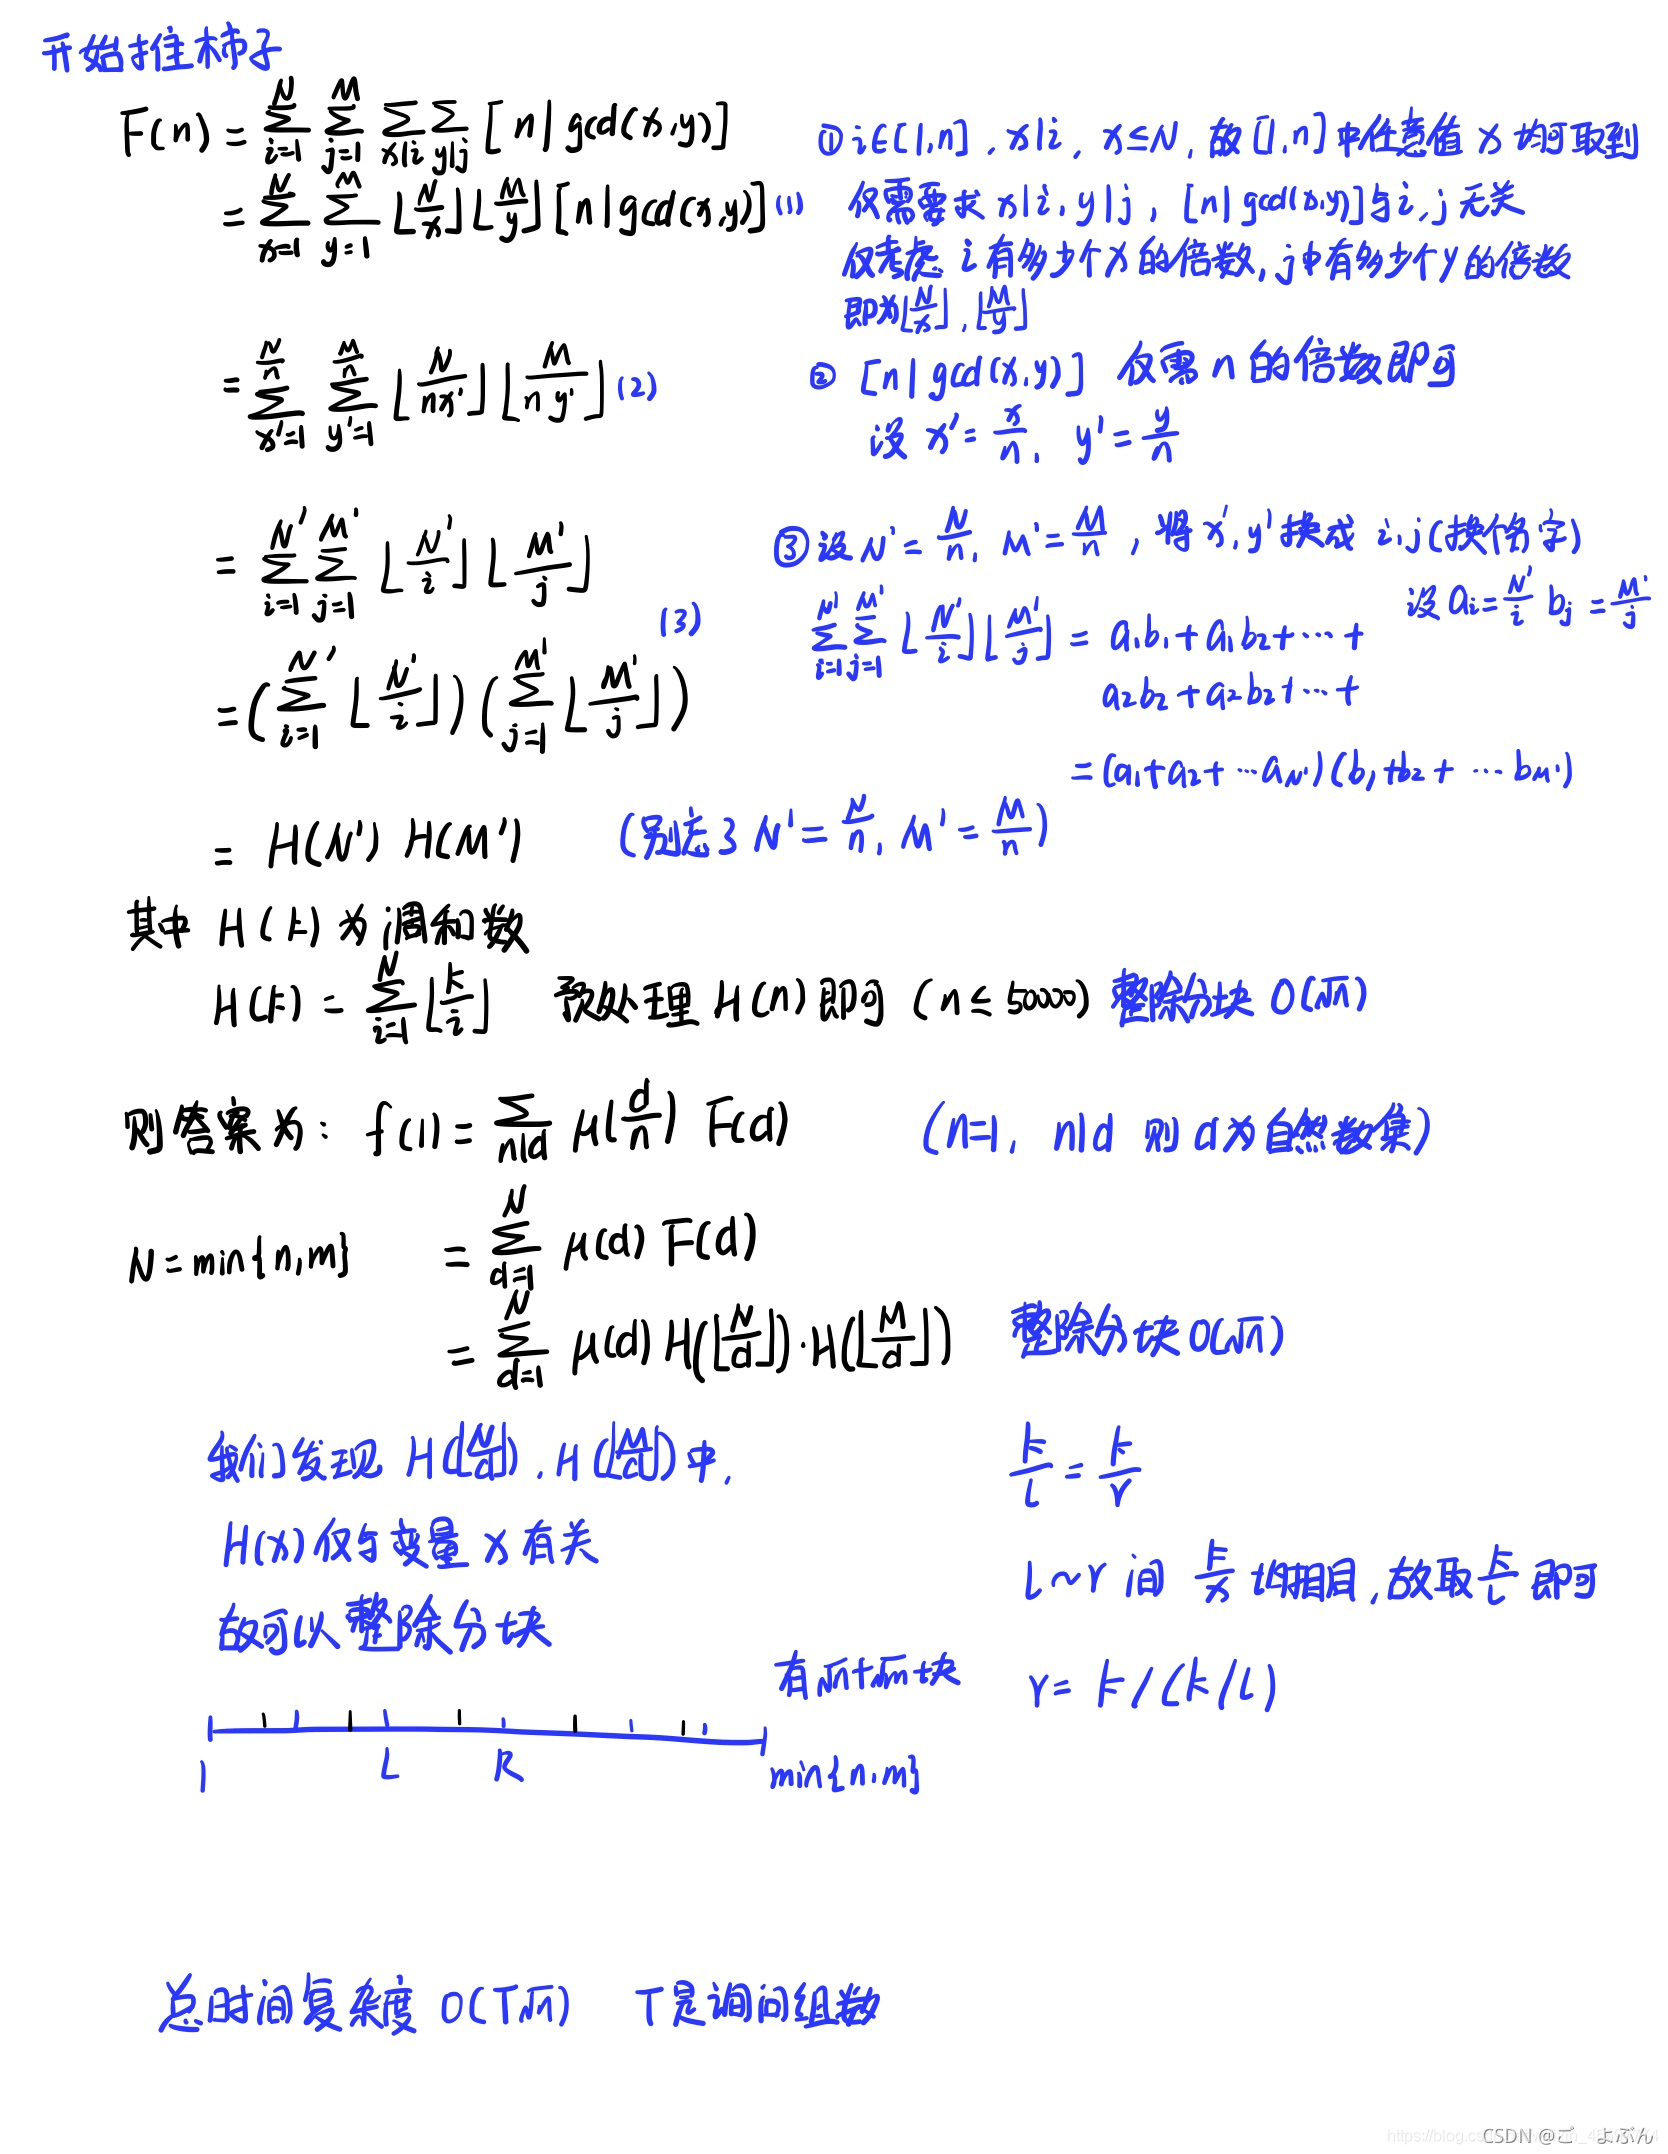 开始推柿子
F(n) = ∑_{i=1}^{N} ∑_{j=1}^{M} ∑_{x|i} ∑_{y|j} [n | gcd(x,y)]
= ∑_{x=1}^{N} ∑_{y=1}^{M} ⌊N/x⌋ ⌊M/y⌋ [n | gcd(x,y)] (1)
① i∈[1,n] , x|i, x≤N, 故[1,n]中任意值 x 均可取到
仅需要求 x|i, y|j, [n | gcd(x,y)]与i, j无关
仅考虑 i 有多少个x的倍数, j中有多少个y的倍数
即为⌊N/x⌋, ⌊M/y⌋
= ∑_{x'=1}^{N/n} ∑_{y'=1}^{M/n} ⌊N/nx'⌋ ⌊M/ny'⌋ (2)
② [n | gcd(x,y)] 仅需 n 的倍数即可
设 x' = x/n, y' = y/n
= ∑_{i=1}^{N'} ∑_{j=1}^{M'} ⌊N'/i⌋ ⌊M'/j⌋
(3)
= (∑_{i=1}^{N'} ⌊N'/i⌋) (∑_{j=1}^{M'} ⌊M'/j⌋)
③ 设 N' = N/n, M' = M/n, 将 x', y' 换成 i,j (换个名字)
设 a_i = N'/i b_j = M'/j
∑_{i=1}^{N'} ∑_{j=1}^{M'} ⌊N'/i⌋ ⌊M'/j⌋ = a₁b₁ + a₁b₂ + ⋯ +
a₂b₂ + a₂b₂ + ⋯ +
= (a₁+a₂+ ⋯ a_{N'}) (b₁+b₂+ ⋯ b_{M'})
= H(N') H(M') (别忘了 N' = N/n, M' = M/n)
其中 H(k) 为调和数
H(k) = ∑_{i=1}^{N} ⌊k/i⌋ 预处理 H(n) 即可 (n ≤ 50000) 整除分块 O(√n)
则答案为: f(1) = ∑_{n|d} μ(d/n) F(d) (n=1, n|d 则 d为自然数集)
N = min{n,m} = ∑_{d=1}^{N} μ(d) F(d)
= ∑_{d=1}^{N} μ(d) H(⌊N/d⌋)·H(⌊M/d⌋) 整除分块 O(√n)
我们发现 H(⌊N/d⌋), H(⌊M/d⌋)中,
H(x)仅与变量 x 有关
故可以整除分块
k/l = k/r
l~r 间 k/x 均相同, 故取 k/l 即可
r = k/(k/l)
有√n+√m块
1 L R min{n,m}
总时间复杂度 O(T√n) T是询问组数
CSDN @ご よぶん